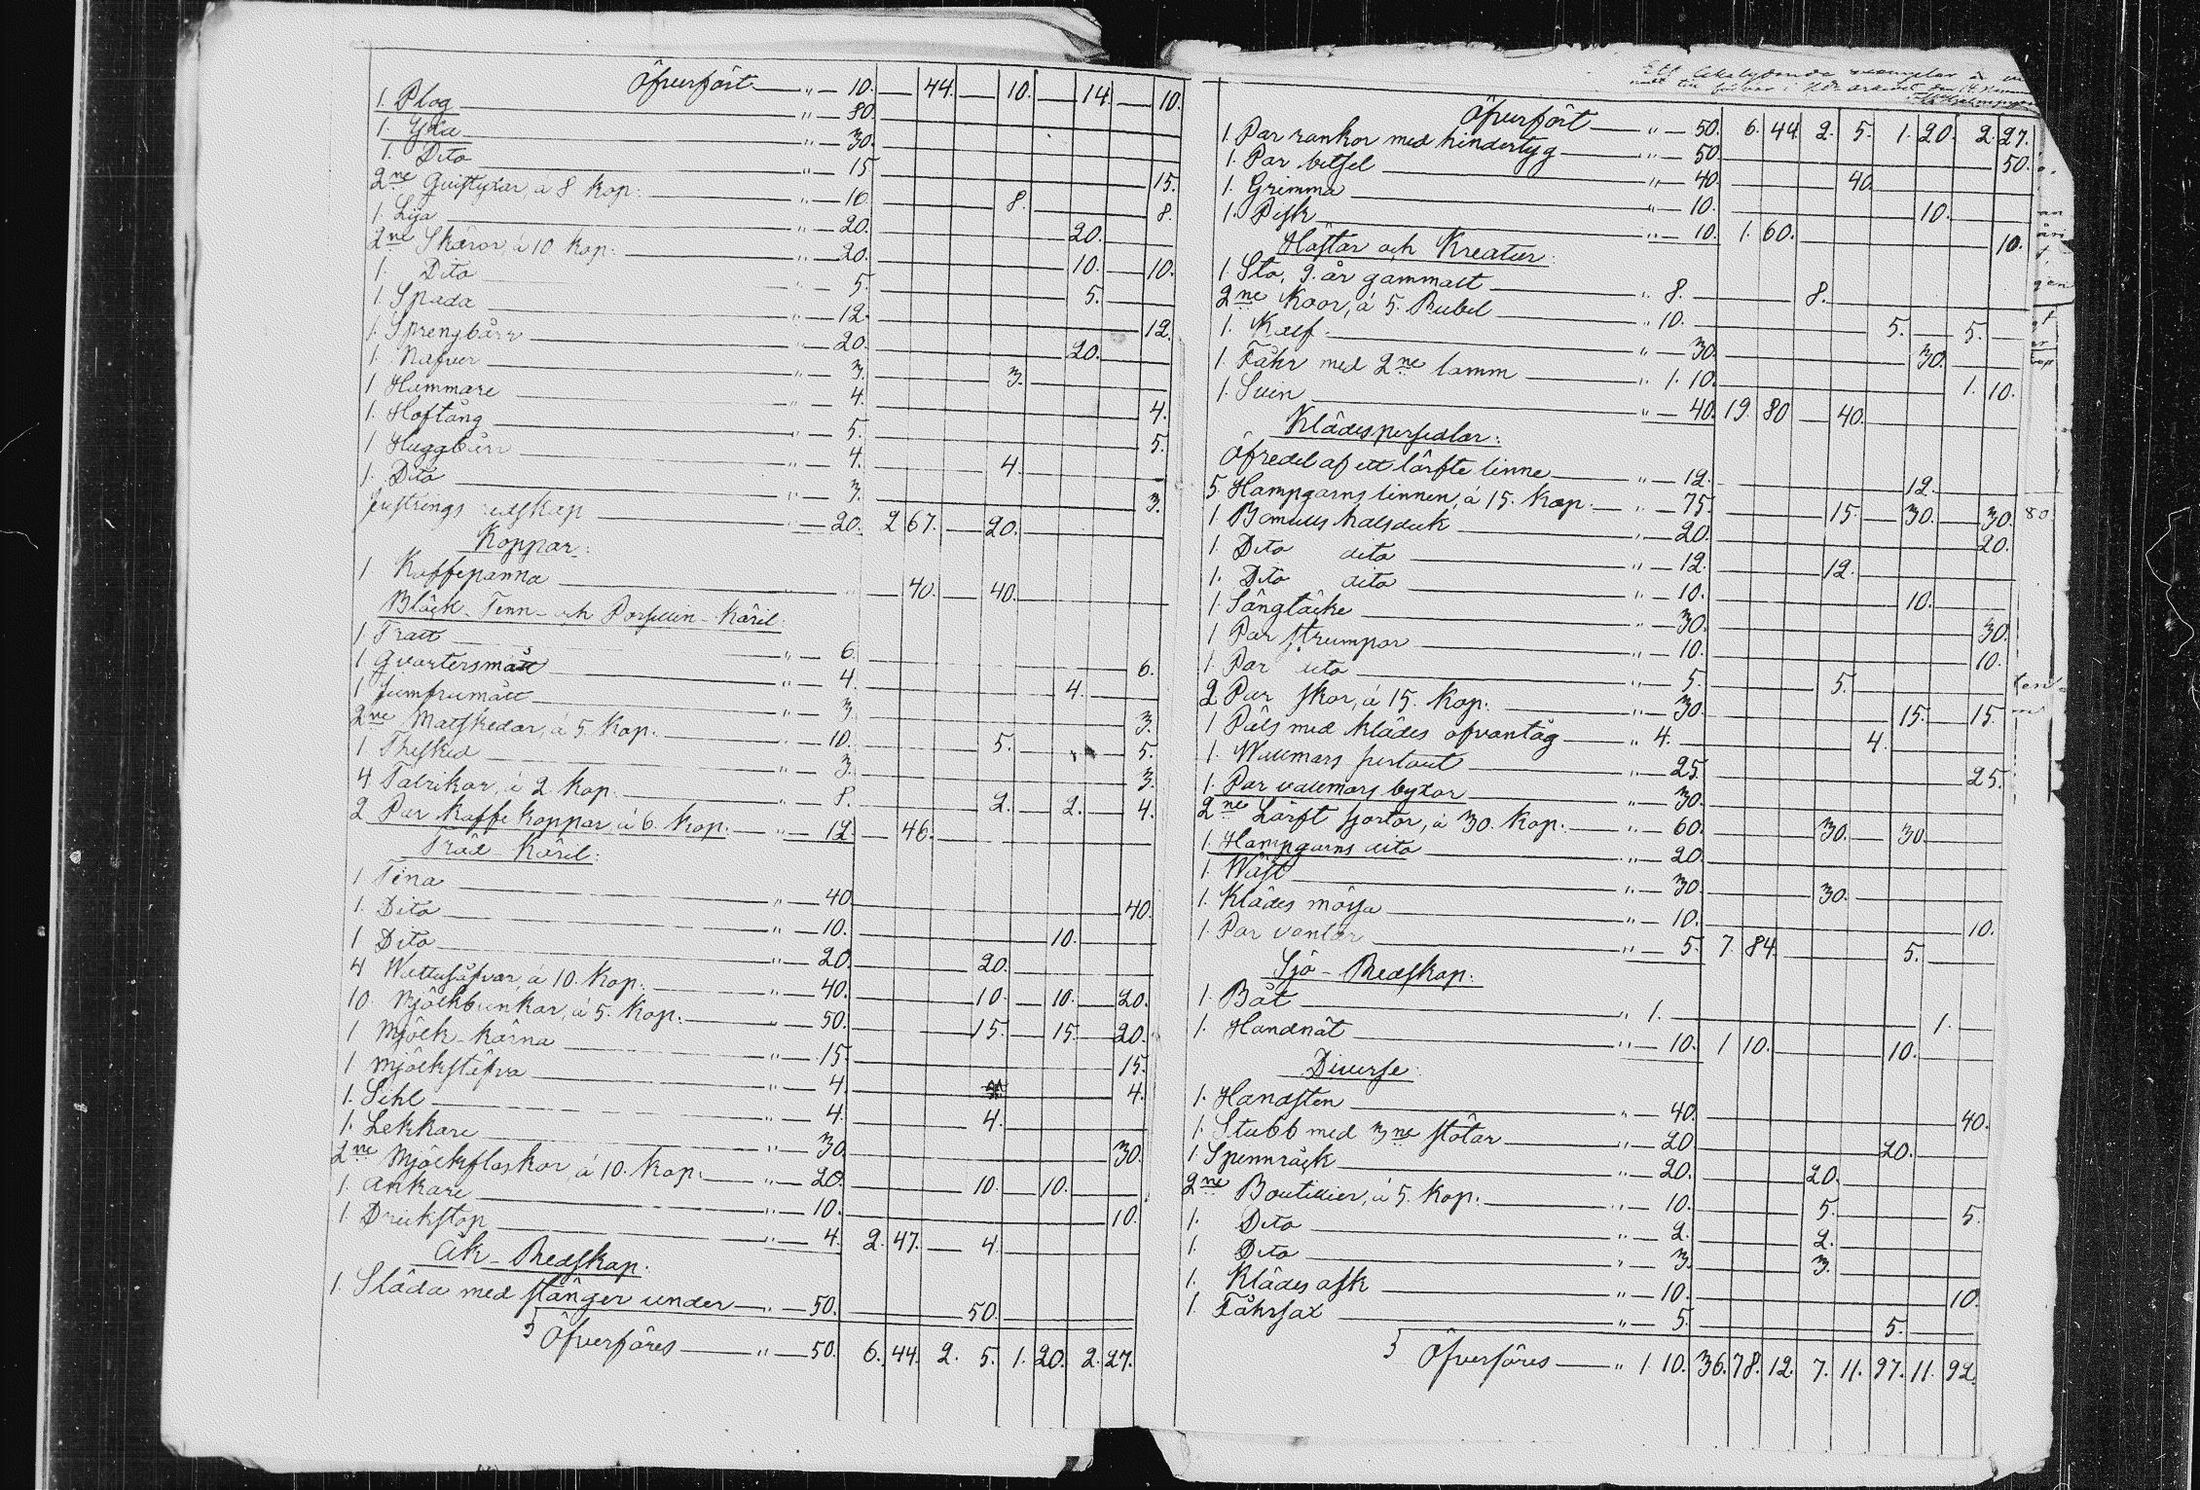 Öfverfört — " — 10. — 44. — 10. — 14. — 10.
1. Plog — " — 80.
1. Yxa — " — 30.
1. Dito — " — 15 — 15.
2ne Qvistyxar, à 8 Kop: — " — 16. — 8. — 8.
1. Lija — " — 20. — 20.
2ne Skäror, à 10 Kop: — " — 20. — 10. — 10.
1. Dito — " — 5. — 5.
1. Spada — " — 12. — 12.
1. Sprengbårr — " — 20. — 20.
1. Nafver — " — 3. — 3.
1 Hammare — " — 4. — 4.
1. Hoftång — " — 5. — 5.
1 Huggbårr — " — 4. — 4.
1. Dito — " — 3. — 3.
redskap — " — 20. 2 67. — 20.
Koppar:
1 Kaffepanna — " — 40. — 40.
Bläck- Tenn- och Porslin- Käril:
1 Tratt — " — 6. — 6.
1 Qvartersmått — " — 4. — 4.
1 Jumfrumått — " — 3. — 3.
2ne Matskedar, à 5. Kop. — " — 10. — 5. — 5.
1 Thesked — " — 3. — 3.
4 Talrikar, à 2 Kop. — " — 8. — 2. — 2. — 4.
2 Par Kaffe koppar, à 6. Kop. — " — 12 — 46.
Träd Käril:
1 Tina — " — 40. — 40.
1. Dito — " — 10. — 10.
1 Dito — " — 20. — 20.
4 à 10. Kop. — " — 40. — 10. — 10. — 20.
10 Mjölkbunkar, à 5. Kop. — " — 50. — 15. — 15. — 20.
1 Mjölk-kärna — " — 15. — 15.
1 Mjölkstäfva — " — 4. — 4.
1. Sihl — " — 4. — 4.
1. Lekkare — " — 30. — 30.
2ne Mjölkflaskor, à 10. Kop. — " — 20. — 10. — 10.
1. Ankare — " — 10. — 10.
1. Drickstop — " — 4. 2. 47. — 4.
Åk-Redskap.
1. Släda med stänger under — " — 50. — 50.
Öfverföres — " — 50. 6. 44. 2. 5. 1. 20. 2. 27.
Ett
Öfverfört — " — 50. 6. 44. 2. 5. 1. 20. 2. 27.
1. Par rankor med hindertyg — " — 50. — 50.
1. Par betsel — " — 40. — 40.
1. Grimma — " — 10. — 10.
1. Pisk — " — 10. 1. 60. — 10.
Hästar och Kreatur:
1. Sto, 9. år gammalt — " 8. — 8.
2ne Koor, à 5. Rubel — " 10. — 5. — 5.
1. Kalf — " — 30. — 30.
1. Fåhr med 2ne lamm — " 1. 10. — 1. 10.
1. Svin — " — 40. 19. 80 — 40.
Klädespersedlar:
Öfredel af ett lärfts linne — " — 12. — 12.
5. Hampgarns linnen, à 15. Kop. — " — 75. — 15. — 30. — 30.
1. Bomulls halsduk — " — 20. — 20.
1. Dito dito — " — 12. — 12.
1. Dito dito — " — 10. — 10.
1. Sängtäcke — " — 30. — 30.
1 Par strumpor — " — 10. — 10.
1. Par dito — " — 5. — 5.
2 Par skor, à 15. Kop. — " — 30. — 15. — 15.
1 Päls med klädes ofvantåg — " 4. — 4.
1. Wallmars surtout — " — 25. — 25.
1. Par vallmars byxor — " — 30.
2ne Lärft sjortor, à 30. Kop. — " — 60. — 30. — 30.
1. Hampgarns dito — " — 20.
1. Wäst — " — 30. — 30.
1. Klädes mössa — " — 10. — 10.
1. Par vantar — " — 5. 7. 84. — 5.
Sjö-Redskap:
1. Båt — " 1. — 1.
1. Handnät — " — 10. 1 10. — 10.
Diverse:
1. Handsten — " — 40. — 40.
1. Stubb med 3ne stötar — " — 20 — 20.
1. Spennräck — " — 20. — 20.
2ne Boutillier, à 5. Kop. — " — 10. — 5. — 5.
1. Dito — " — 2. — 2.
1. Dito — " — 3. — 3.
1. Klädes ask — " — 10. — 10.
1. Fåhrsax — " — 5. — 5.
Öfverföres — " 1 10. 36. 78. 12. 7. 11. 97. 11. 92.